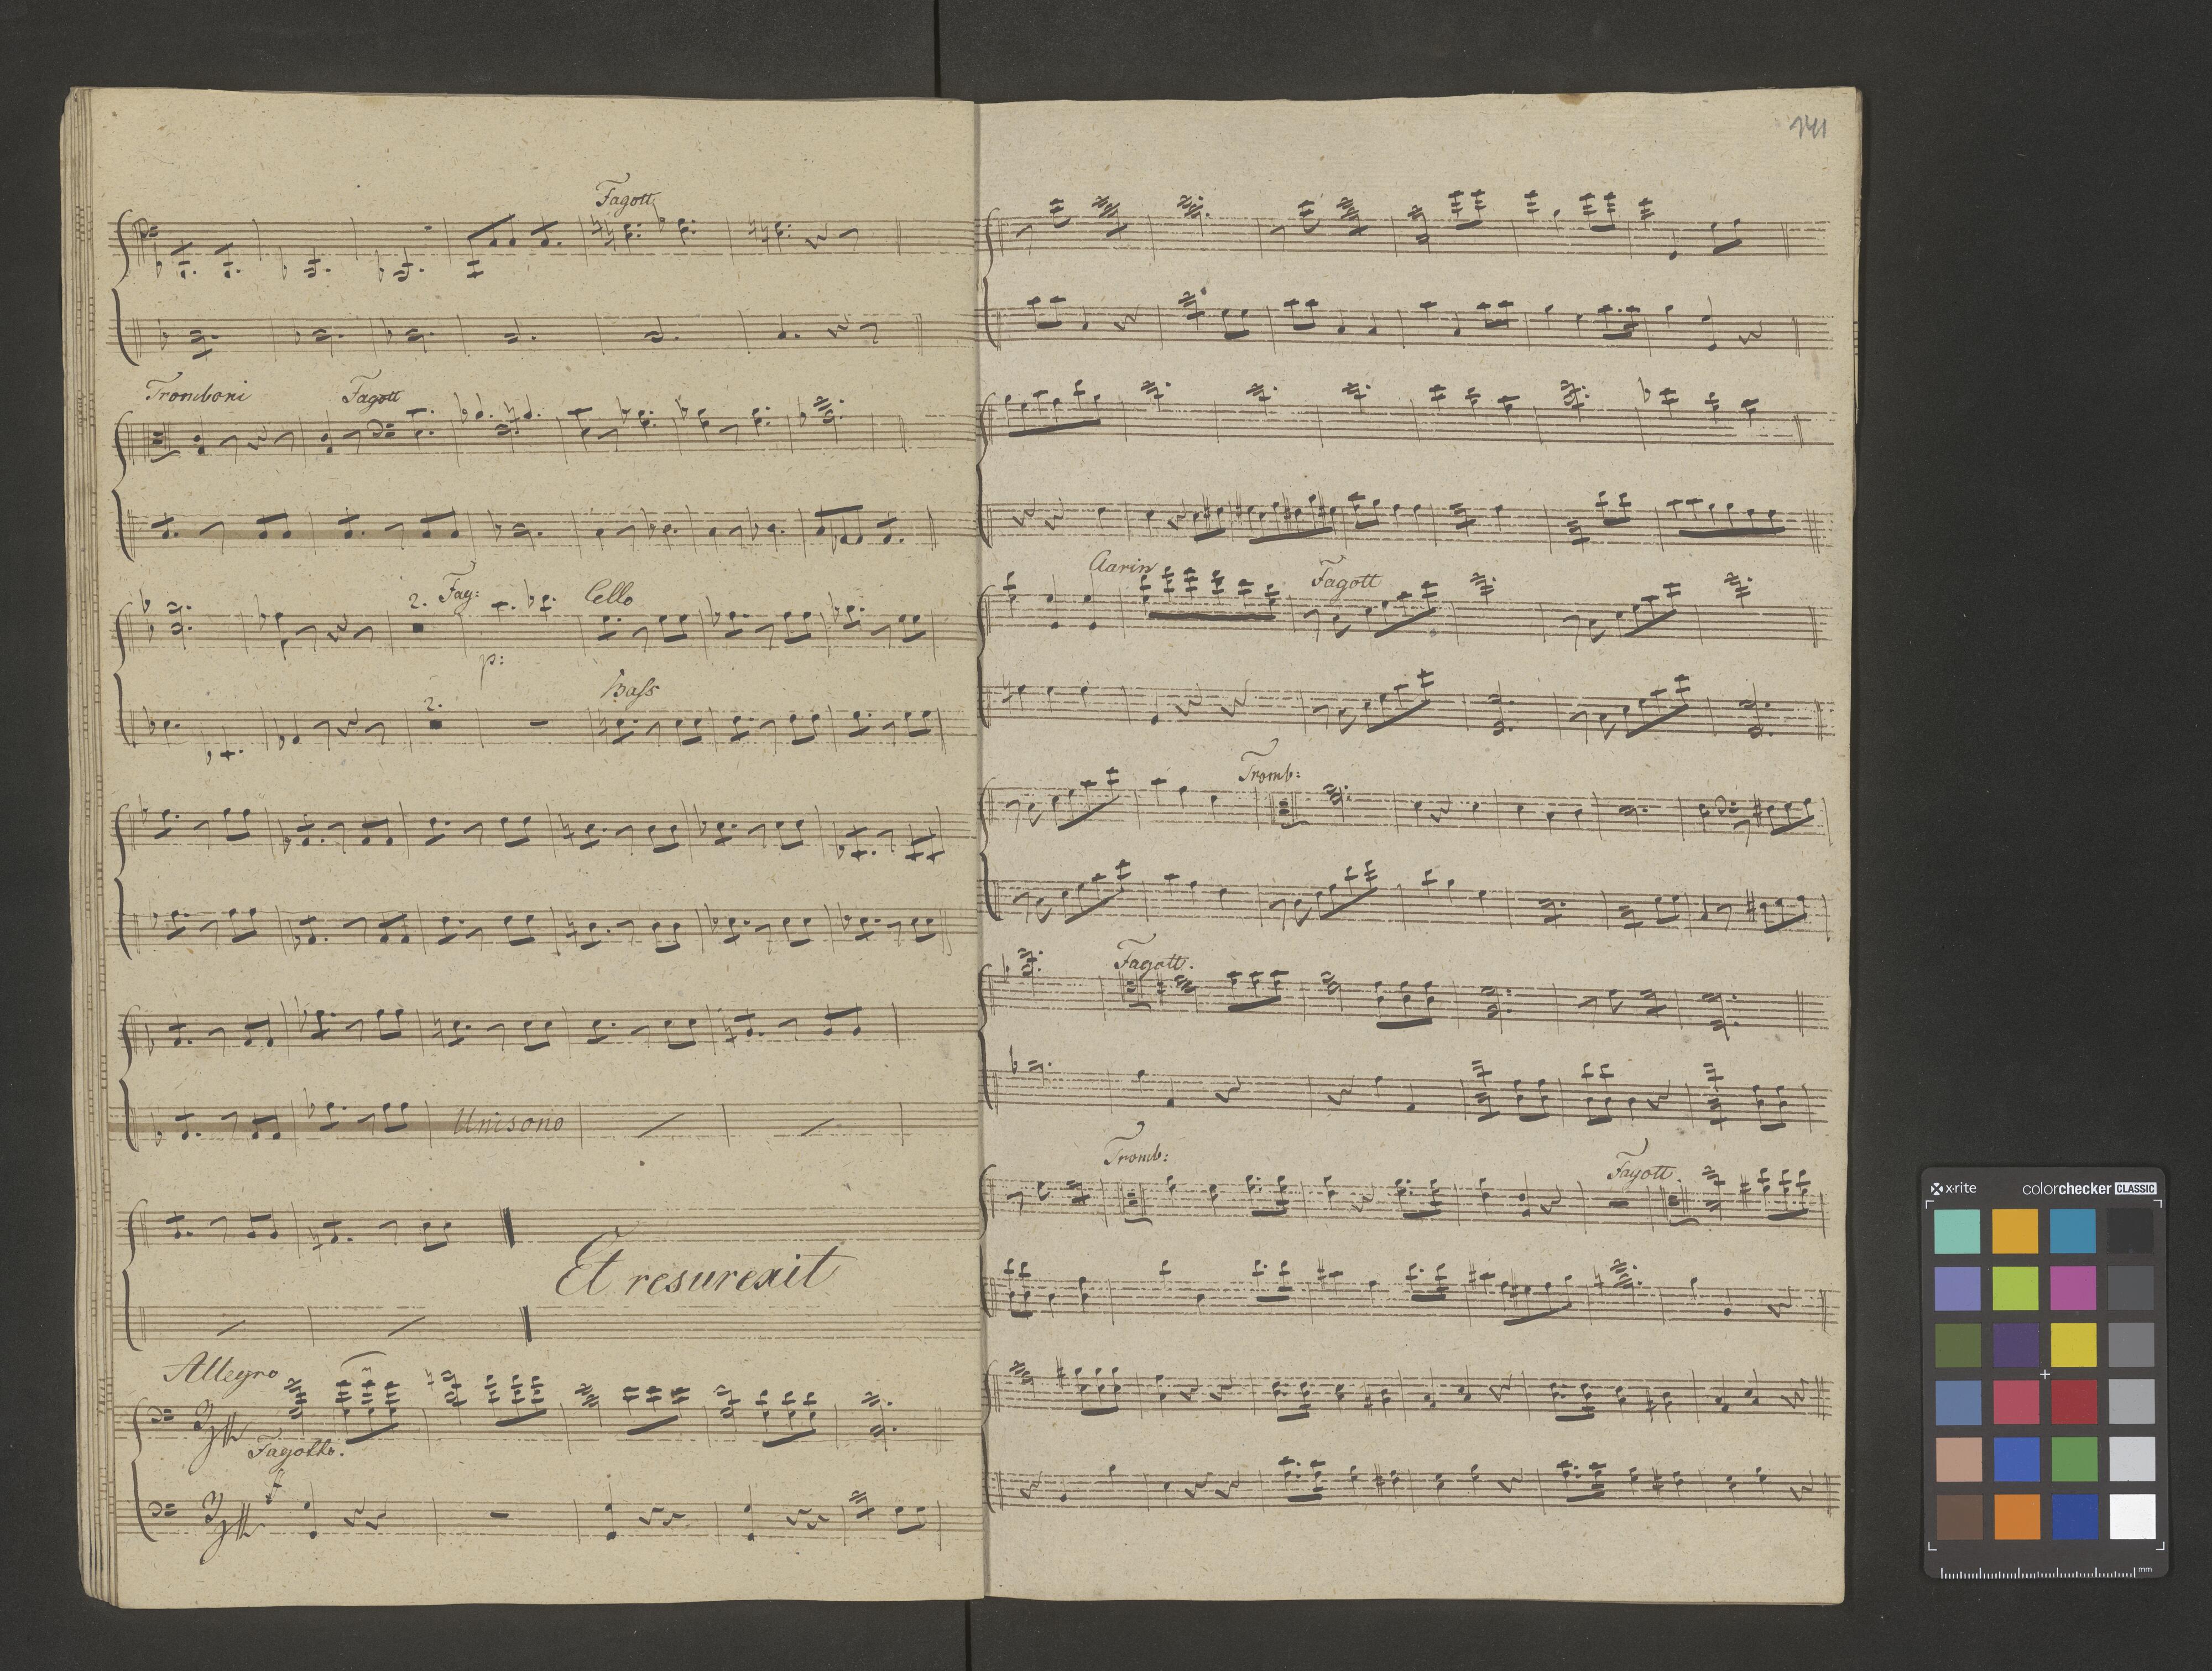 Fagott
Tromboni Fagott
2. Fag: Cello
p:
2. Bass
Unisono
Et resurexit
Allegro
Fagotto.
f
141
Clarin Fagott
Tromb:
Fagott.
Tromb: Fagott.
x-rite colorchecker CLASSIC
mm